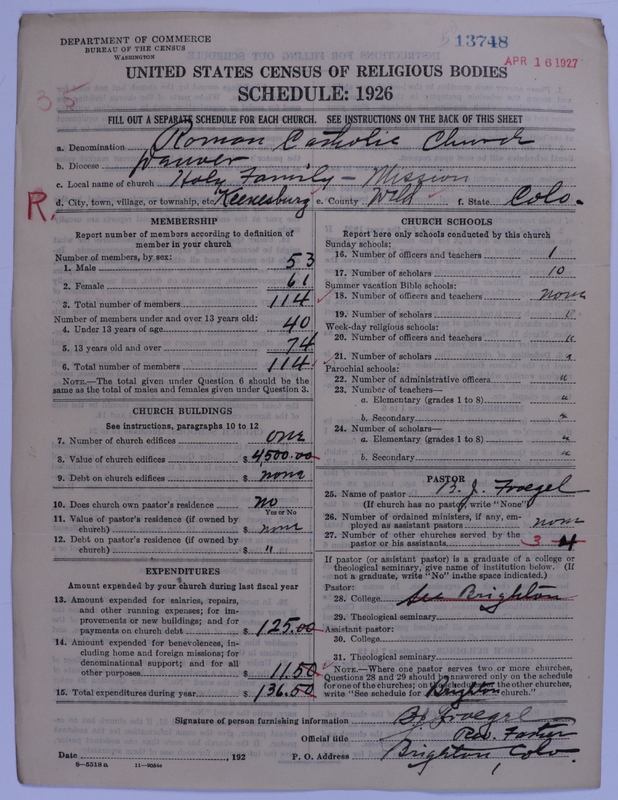 DEPARTMENT OF COMMERCE
BUREAU OF THE CENSUS
WASHINGTON
13748
APR 16 1927
UNITED STATES CENSUS OF RELIGIOUS BODIES
SCHEDULE: 1926
35
FILL OUT A SEPARATE SCHEDULE FOR EACH CHURCH. SEE INSTRUCTIONS ON THE BACK OF THIS SHEET
a. Denomination Roman Catholic Church
b. Diocese Danver
c. Local name of church Holy Family - Mission
R.
d. City, town, village, or township, etc. Keenesburg e. County Weld f. State Colo.
MEMBERSHIP
Report number of members according to definition of
member in your church
Number of members, by sex:
1. Male 53
2. Female 61
3. Total number of members 114
Number of members under and over 13 years old:
4. Under 13 years of age 40
5. 13 years old and over 74
6. Total number of members 114
NOTE.—The total given under Question 6 should be
same as the total of males and females given under Question 3.
CHURCH BUILDINGS
See instructions, paragraphs 10 to 12
7. Number of church edifices one
8. Value of church edifices $ 4,500.00
9. Debt on church edifices $ none
10. Does church own pastor's residence no
Yes or No
11. Value of pastor's residence (if owned by
church) $ none
12. Debt on pastor's residence (if owned by
church) $ "
EXPENDITURES
Amount expended by your church during last fiscal year
13. Amount expended for salaries, repairs,
and other running expenses; for im-
provements or new buildings; and for
payments on church debt $ 125.00
14. Amount expended for benevolences, in-
cluding home and foreign missions; for
denominational support; and for all
other purposes $ 11.50
15. Total expenditures during year $ 136.50
CHURCH SCHOOLS
Report here only schools conducted by this church
Sunday schools:
16. Number of officers and teachers 1
17. Number of scholars 10
Summer vacation Bible schools:
18. Number of officers and teachers none
19. Number of scholars "
Week-day religious schools:
20. Number of officers and teachers "
21. Number of scholars "
Parochial schools:
22. Number of administrative officers "
23. Number of teachers—
a. Elementary (grades 1 to 8) "
b. Secondary "
24. Number of scholars—
a. Elementary (grades 1 to 8) "
b. Secondary "
PASTOR
25. Name of pastor B. J. Froegel
(If church has no pastor, write "None")
26. Number of ordained ministers, if any, em-
ployed as assistant pastors none
27. Number of other churches served by the
pastor or his assistants 3 4
If pastor (or assistant pastor) is a graduate of a college or
theological seminary, give name of institution below. (If
not a graduate, write "No" in the space indicated.)
Pastor:
28. College See Brighton
29. Theological seminary
Assistant pastor:
30. College
31. Theological seminary
NOTE.—Where one pastor serves two or more churches,
Questions 28 and 29 should be answered only on the schedule
for one of the churches; on the schedules for the other churches,
write "See schedule for Brighton church."
Signature of person furnishing information B J Froegel
Official title Rev. Father
Date , 192 P. O. Address Brighton, Colo.
8—5518 a